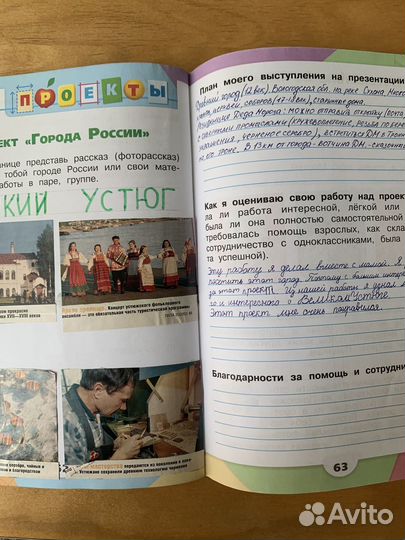 ПРОЕКТЫ
ЕКТ «ГОРОДА РОССИИ»
нице представь рассказ (фоторассказ)
тобой городе России или свои мате-
аботы в паре, группе.
КИЙ УСТЮГ
прекрасне
XVII—XVIII веков
Концерт устюжского фольклорного
ансамбля — это обязательная часть туристической программы
серебре, чайных и
и благородством
мастерства передаются из поколения в поко-
Устюжане сохранили древнюю технологию чернения
62
План моего выступления на презентации
Древний город (12 век). Вологодская обл. на реке Сухона. Много
соборов (17-18 век), старинные дома.
Деда Мороза: можно отправить открытку (почта
промыслами (кружевоплетение, резьба по
чернение серебра), встретиться ДМ в Тронном
троне. В 13 км от города - вотчина ДМ - сказочный
Как я оцениваю свою работу над проек
ла ли работа интересной, лёгкой или
была ли она полностью самостоятельной
требовалась помощь взрослых, как скла
сотрудничество с одноклассниками, была
та успешной).
Эту работу я делал вместе с мамой. Я
посетить этот город. Поэтому с большим интере
за этот проект. Из нашей работы я узнал
го и интересного о Великом Устюге.
Этот проект мне очень понравился.
Благодарности за помощь и сотрудни
63
Avito